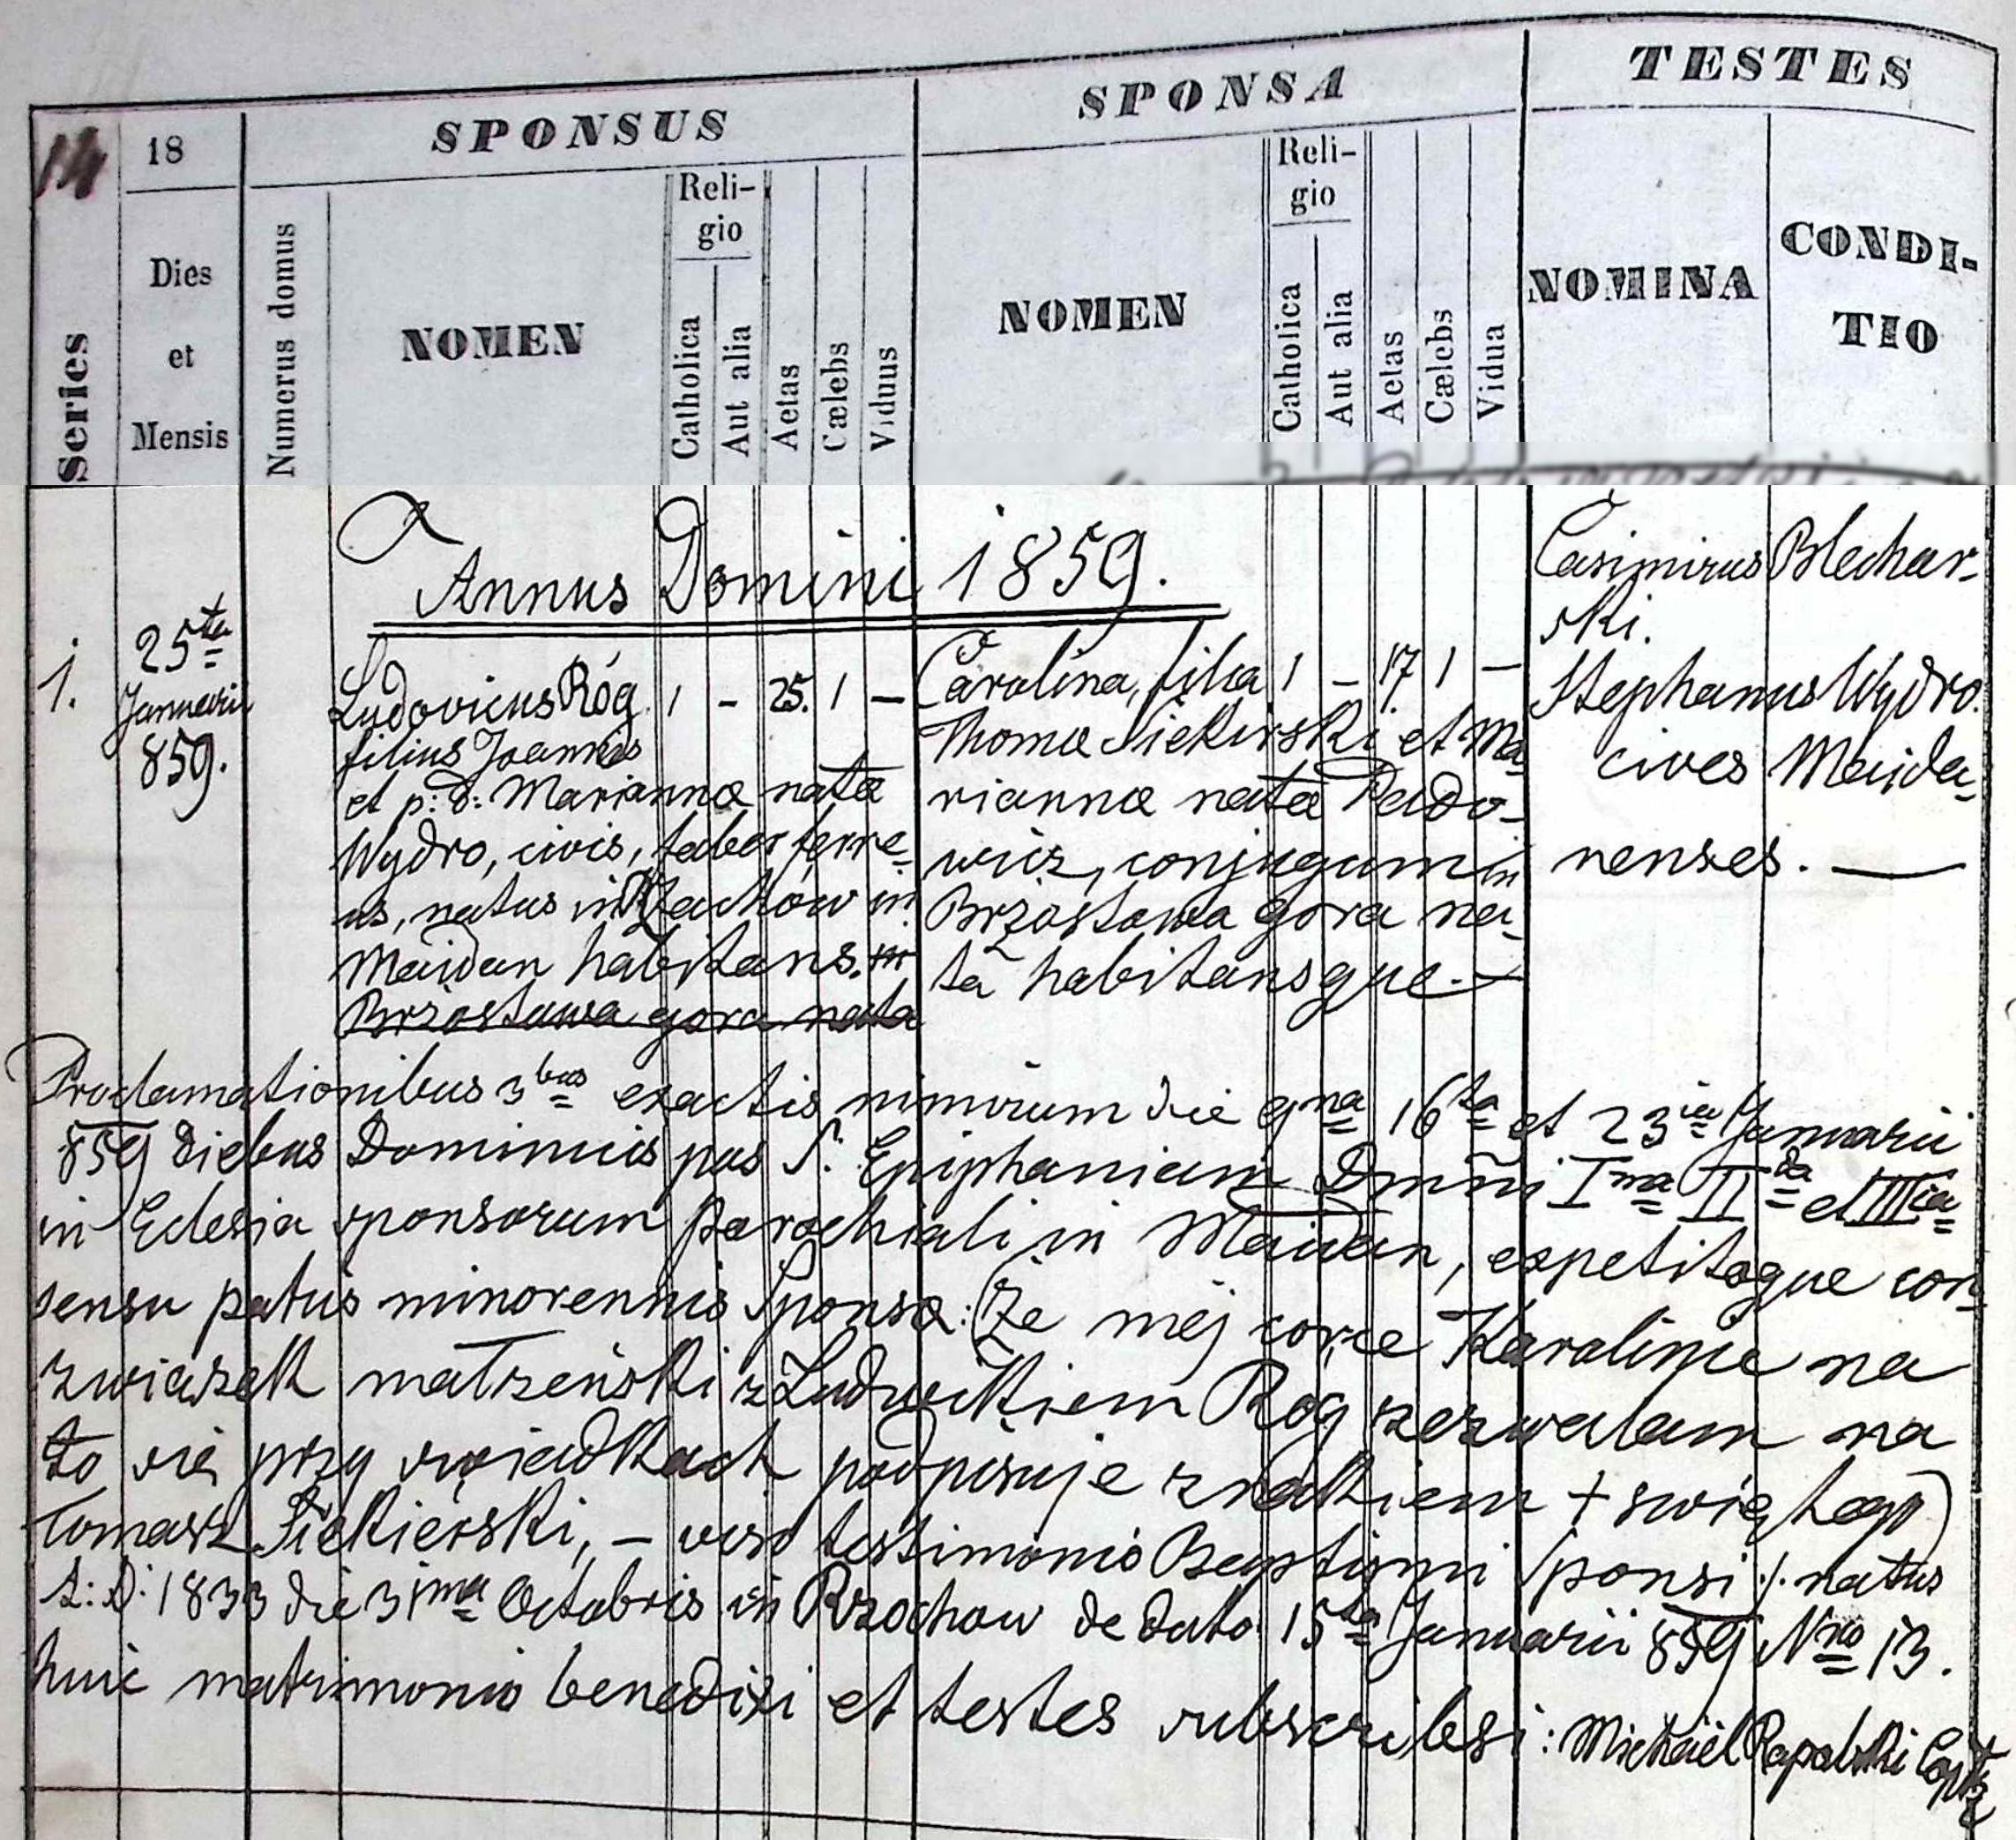 14
18
SPONSUS
SPONSA
TESTES
Series
Dies
et
Mensis
Numerus domus
NOMEN
Reli-
gio
Catholica
Aut alia
Aetas
Cælebs
Viduus
NOMEN
Reli-
gio
Catholica
Aut alia
Aetas
Cælebs
Vidua
NOMINA
CONDI-
TIO
Annus Domini 1859.
1.
25ta
Januarii
859.
Ludovicus Róg 1 - 25. 1 —
filius Joannis
et p: d: Mariannæ natæ
Wydro, civis, faber ferre-
us, natus in Rzachow in
Maidan habitans. in
Brzostowa gora nata
Carolina, filia 1 - 17. 1 —
Thomæ Siekirski et Ma-
riannæ natæ Pado-
wicz, conjugum in
Brzostowa gora na-
ta habitansque. —
Casimirus Blechar-
ski.
Stephanus Wydro.
cives Maida-
nenses. —
Proclamationibus 3bus exactis nimirum die 9na 16ta et 23ia Januarii
859 diebus Dominicis pos S. Epiphaniam Dmñi Ima IIda et IIIia
in Eclesia sponsorum parochiali in Maidan, expetitoque con-
sensu patris minorennis Sponsæ: (Że mej corce Karolinie na
zwiazek małzeński z Ludwikiem Rog zezwalam na
to się przy swiadkach podpisuje znakiem + swiętego)
Tomasz Siekierski, — viso testimonio Baptismi Sponsi ./. natus
A: D: 1833 die 31ma Octobris in Rzochow de dato 15ta Januarii 859 Nro 13.
huic matrimonio benedixi et testes subscribsi: Michaël